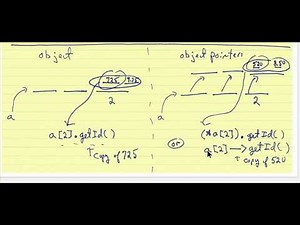 object
725
2
a
a[2].getId()
copy of 725
object pointers
520
2
a
(*a[2]).getId()
or
a[2]→getId()
copy of 520